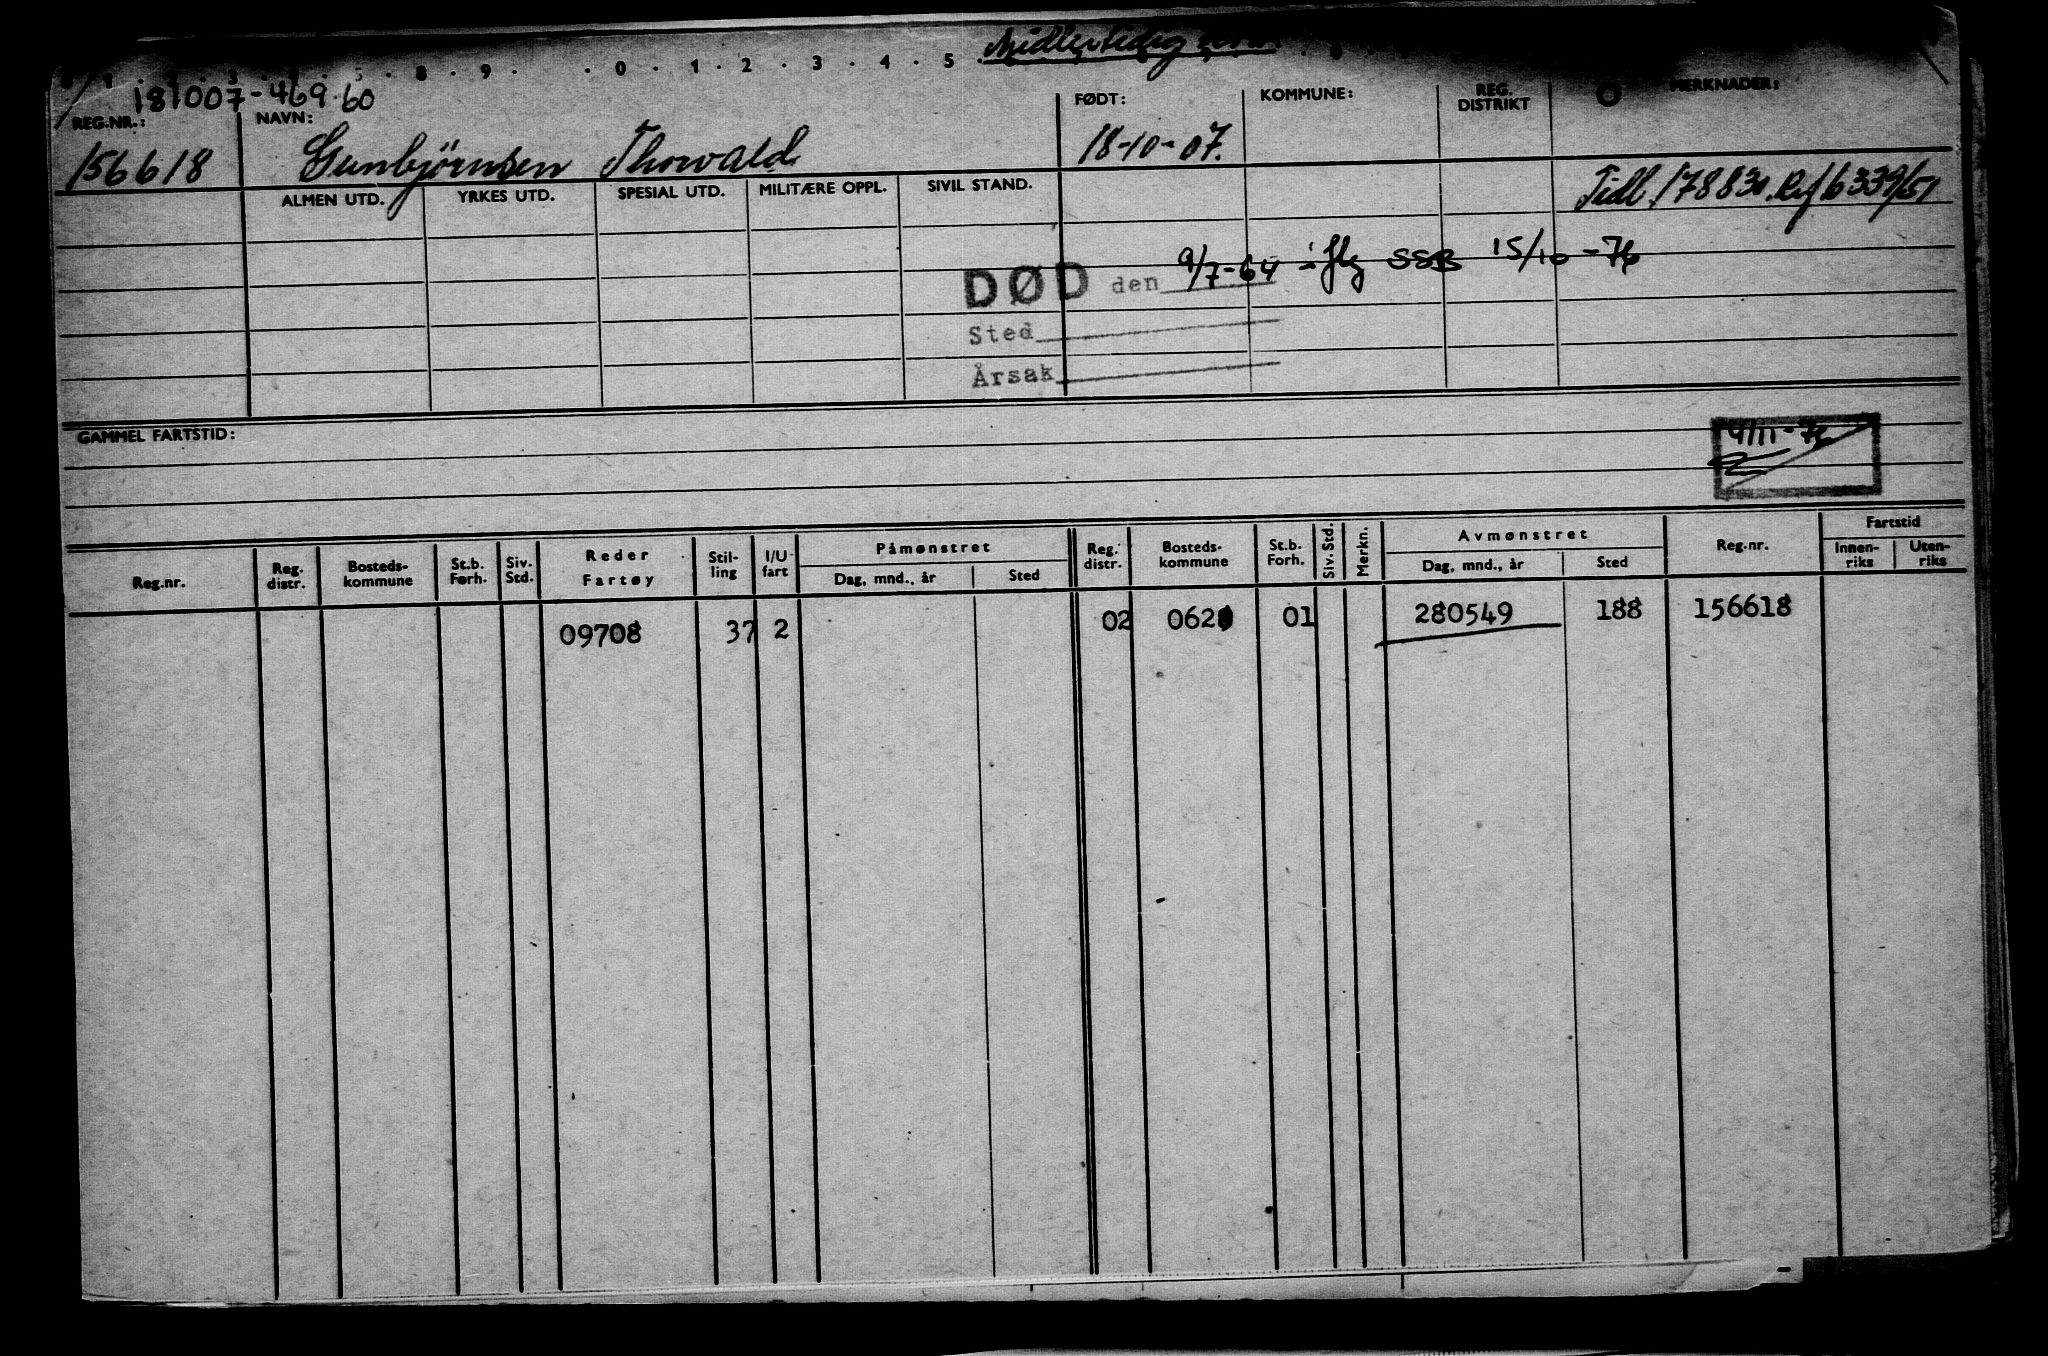 Midlertidig
1 . 3 . 5 . 8 . 9 . . 0 . 1 . 2 . 3 . 4 . 5 .
181007-469.60
REG.NR.: NAVN: FØDT: KOMMUNE: REG. DISTRIKT MERKNADER:
156618 Gunbjørnsen Thorvald 18-10-07.
Tidl. 178830. Ref 6339/51
ALMEN UTD. YRKES UTD. SPESIAL UTD. MILITÆRE OPPL. SIVIL STAND.
DØD den 9/7-64 iflg SSB 15/10-76
Sted
Årsak
GAMMEL FARTSTID:
4/11-76
Reg.nr. Reg. distr. Bosteds-kommune St.b. Førh. Siv. Std. Reder Fartøy Stil-ling I/U fart Påmønstret Dag, mnd., år Sted Reg. distr. Bosteds-kommune St.b. Forh. Siv. Std. Merkn. Avmønstret Dag, mnd., år Sted Reg.nr. Fartstid Innen-riks Uten-riks
09708 37 2 02 01 280549 188 156618